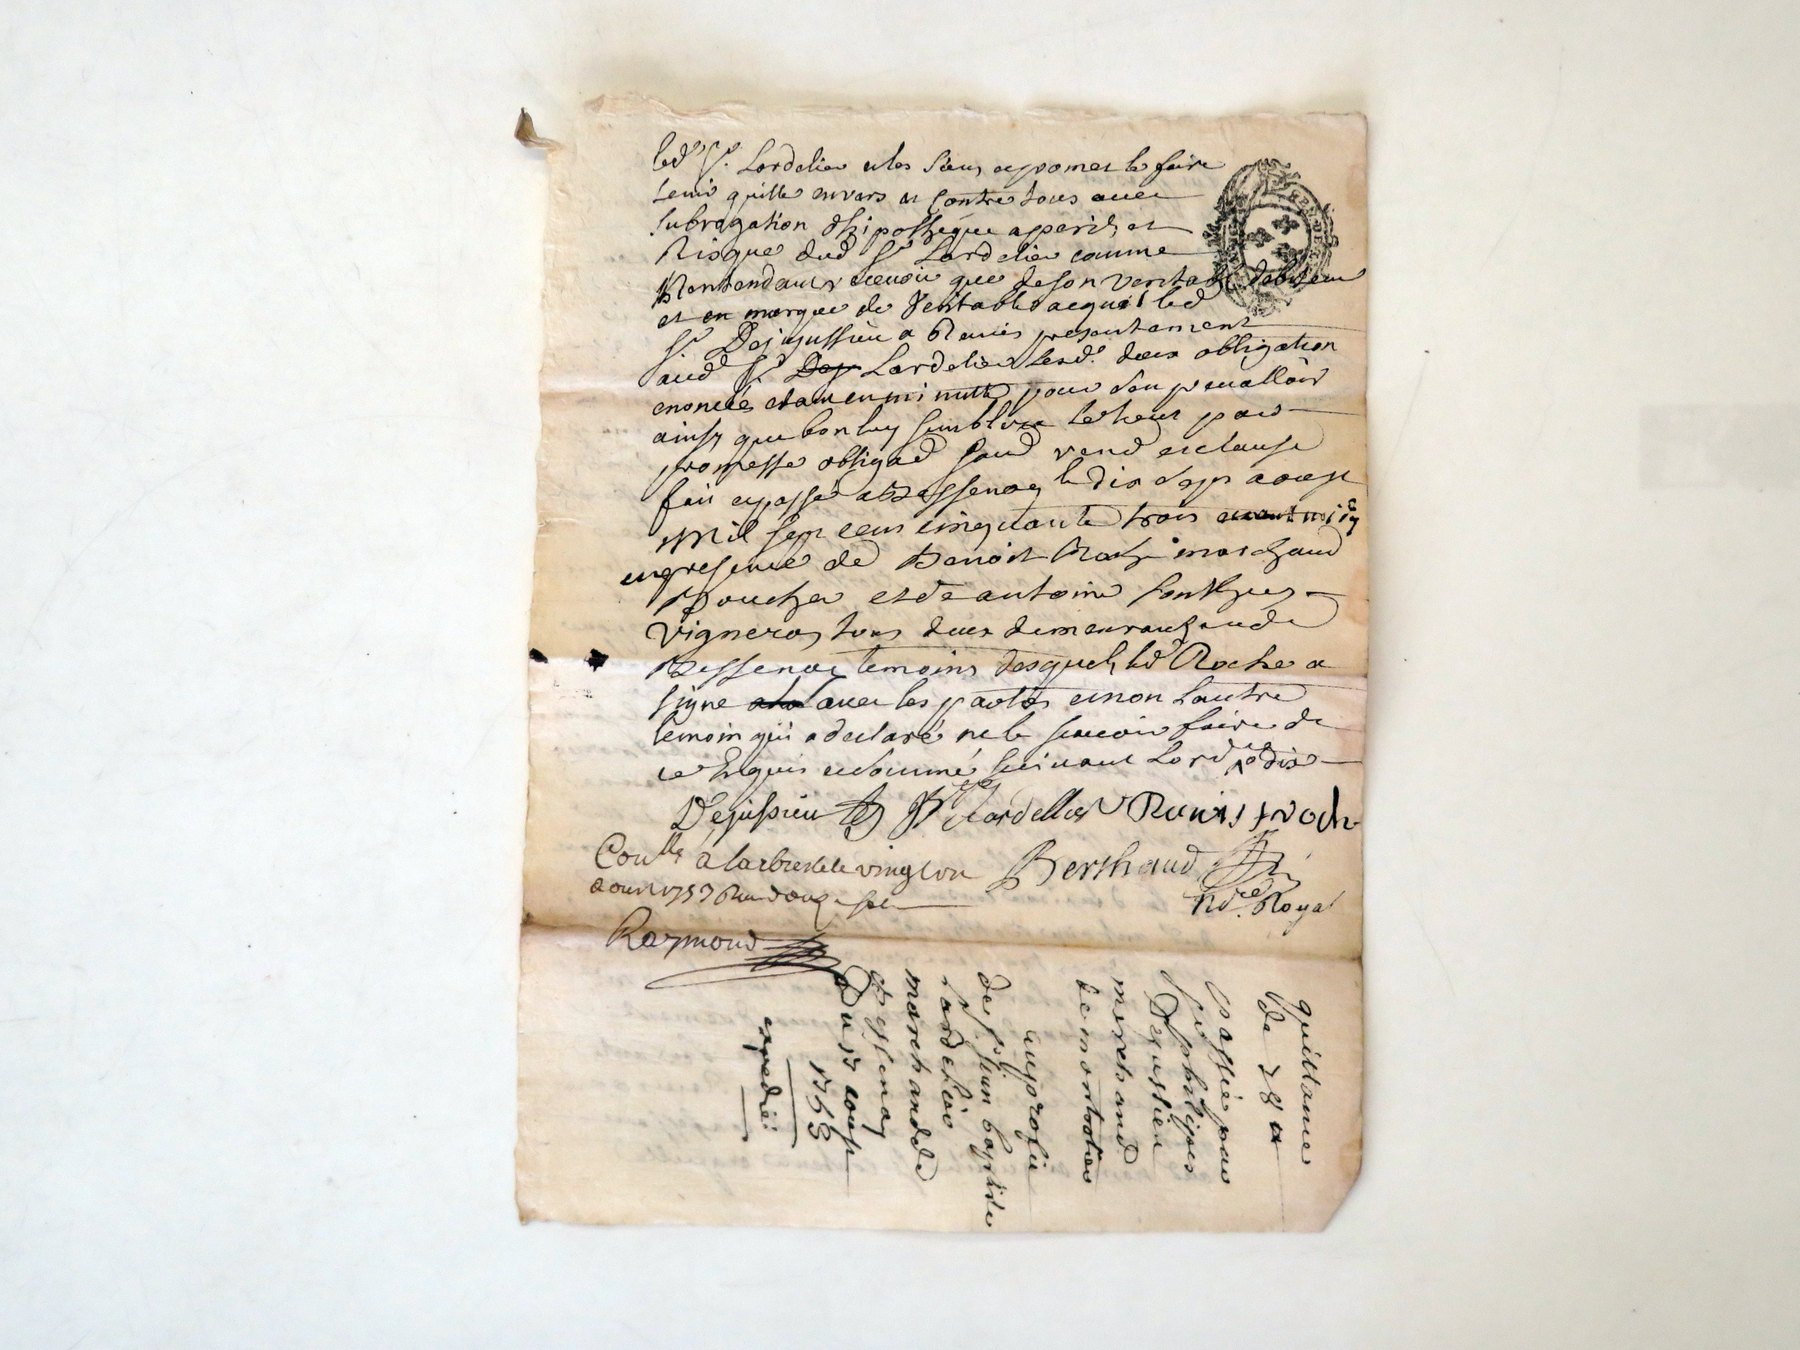 led. Sr. Lardelier et les siens et promet le faire
tenir quitte envers et contre tous avec
subrogation d'hipothèque a peril et
Risque dud Sr Lardelier comme
Nentendant recevoir que de son veritable debiteur
et en marque de veritable acquit led
Sr. Dejussieu a Remis presentement
aud Sr Lardelier lesd. deux obligation
enoncées etant en minutte pour s'en prevalloir
ainsy que bon luy semblera le tout par
promesse obligaon soud renod et clause
fait et passé a Bessenay le dix sept aoust
mil sept cens cinquante trois
en presence de Benoit Roche marchand
Boucher et de antoine
Vigneron tous deux demeurant aud
Bessenay temoins desquels led Roche a
signe avec les parties et non lautre
temoin qui a declaré ne le scavoir faire de
ce Enquis et sommé suivant Lord
Dejussieu Lardellier Benoist roche
Conlle a larbresle le vingt un
aoust 1753 Reçu douze sols
Berthaud
Nore. Royal
Raymond
quittance
de 78 #
passée par
Sr philipes
Dejussieu
merchand
de montrotier
au profit
de Sr jean baptiste
Lardelier
marchand de
Bessenay
Du 17 aoust
1753
expediée